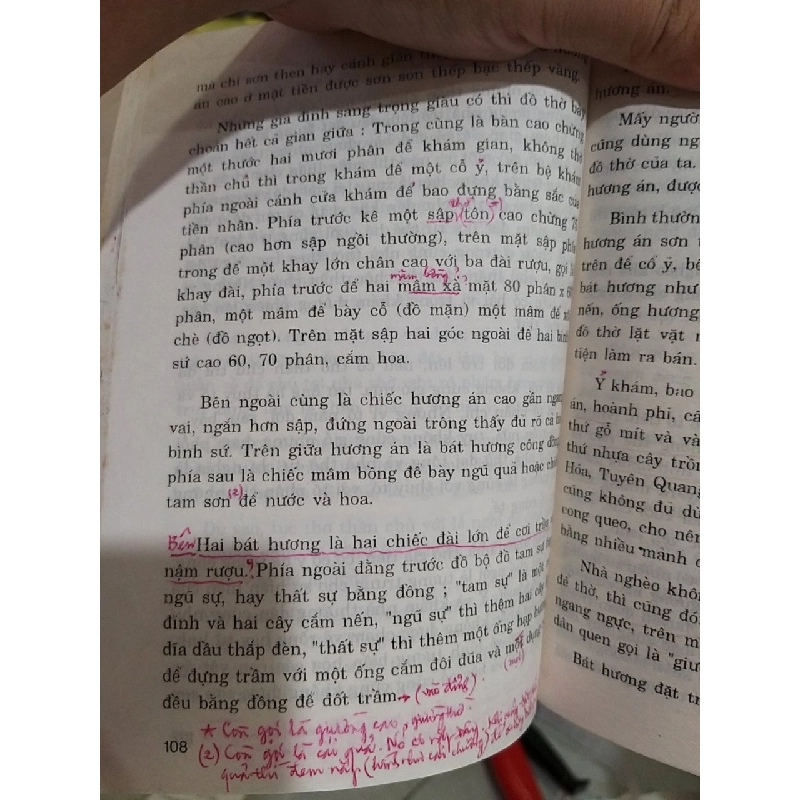 mà chỉ sơn then hay cánh gián
án cao ở mặt tiền được sơn son thếp bạc thếp vàng.
Những gia đình sang trọng giàu có thì đồ thờ bày
choán hết cả gian giữa : Trong cùng là bàn cao chừng
một thước hai mươi phân để khám gian, không thờ
thần chủ thì trong khám để một cỗ ỷ, trên bệ khám
phía ngoài cánh cửa khám để bao đựng bằng sắc của
tiền nhân. Phía trước kê một sập (tôn) cao chừng
phân (cao hơn sập ngồi thường), trên mặt sập phía
trong để một khay lớn chân cao với ba đài rượu, gọi
mâm bồng
khay đài, phía trước để hai mâm xà mặt 80 phân x
phân, một mâm để bày cỗ (đồ mặn) một mâm để
chè (đồ ngọt). Trên mặt sập hai góc ngoài để hai bình
sứ cao 60, 70 phân, cắm hoa.
Bên ngoài cùng là chiếc hương án cao gần ngang
vai, ngắn hơn sập, đứng ngoài trông thấy đủ rõ cả
bình sứ. Trên giữa hương án là bát hương công đồng
phía sau là chiếc mâm bồng để bày ngũ quả hoặc
tam sơn (2) để nước và hoa.
Bên Hai bát hương là hai chiếc đài lớn để cơi trầu
nậm rượu. Phía ngoài đằng trước đồ bộ đồ tam sự
ngũ sự, hay thất sự bằng đồng ; "tam sự" là một
đỉnh và hai cây cắm nến, "ngũ sự" thì thêm hai cây
đĩa dầu thắp đèn, "thất sự" thì thêm một ống hợp
để đựng trầm với một ống cắm đôi đũa và một
đều bằng đồng để đốt trầm
108
* Còn gọi là giường cao, giường thờ.
(2) Còn gọi là cái quả. Nó có nắp đậy.
quả thì đem nắp
hương án.
Mấy ngườ
cũng dùng ng
đồ thờ của ta.
hương án, đượ
Bình thườn
hương án sơn
trên để cỗ ỷ, bê
bát hương như
nến, ống hương
đồ thờ lặt vặt
tiện làm ra bán.
Ỷ khám, bao
án, hoành phi, câ
thứ gỗ mít và và
thứ nhựa cây trồn
Hóa, Tuyên Quang
cũng không đủ dù
cong queo, cho nên
bằng nhiều mảnh
Nhà nghèo khôn
để thờ, thì cũng đó
ngang ngực, trên m
dân quen gọi là "giư
Bát hương đặt tr